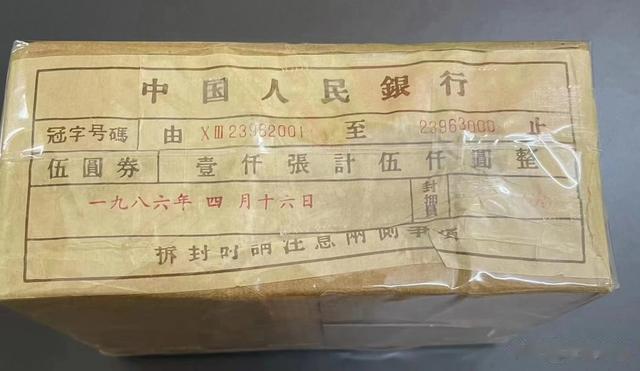 中国人民銀行
冠字号碼 由 XⅢ23962001 至 23963000 止
伍圓券 壹仟張計伍仟圓整
一九八六年 四月十六日 封
拆封时請注意兩側事項